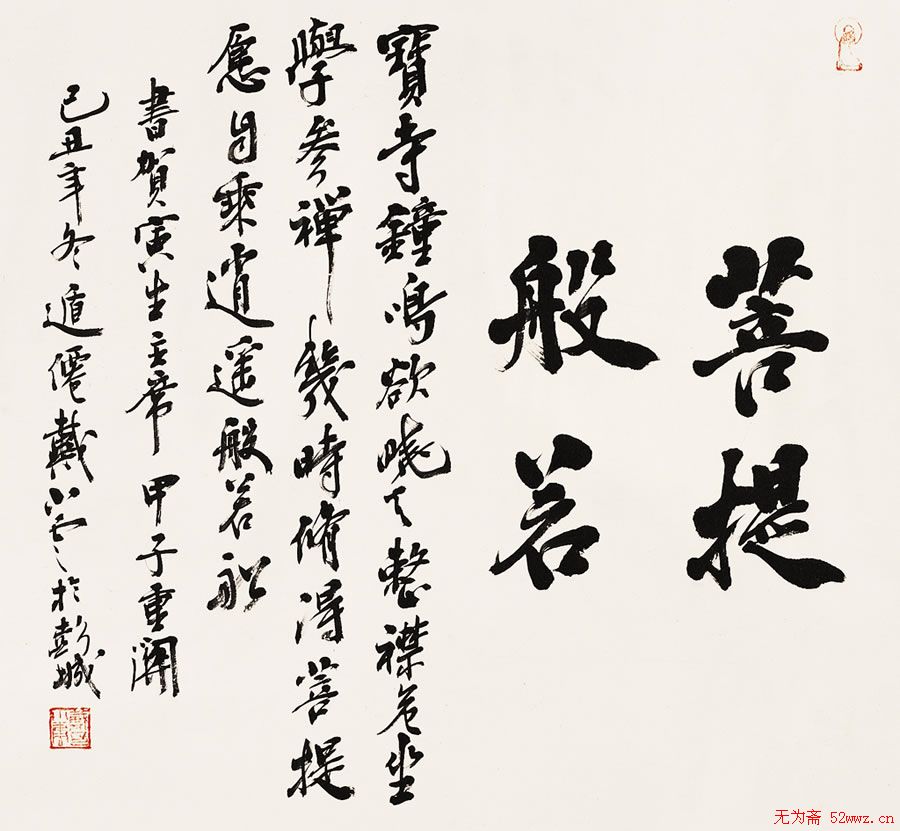 菩提
般若
寶寺鐘鳴欲曉天整襟危坐
學参禪幾時脩得菩提
應自乘逍遙般若船
書賀寅生主席甲子重開
己丑年冬遁僊戴於彭城
无为斋 52wwz.cn